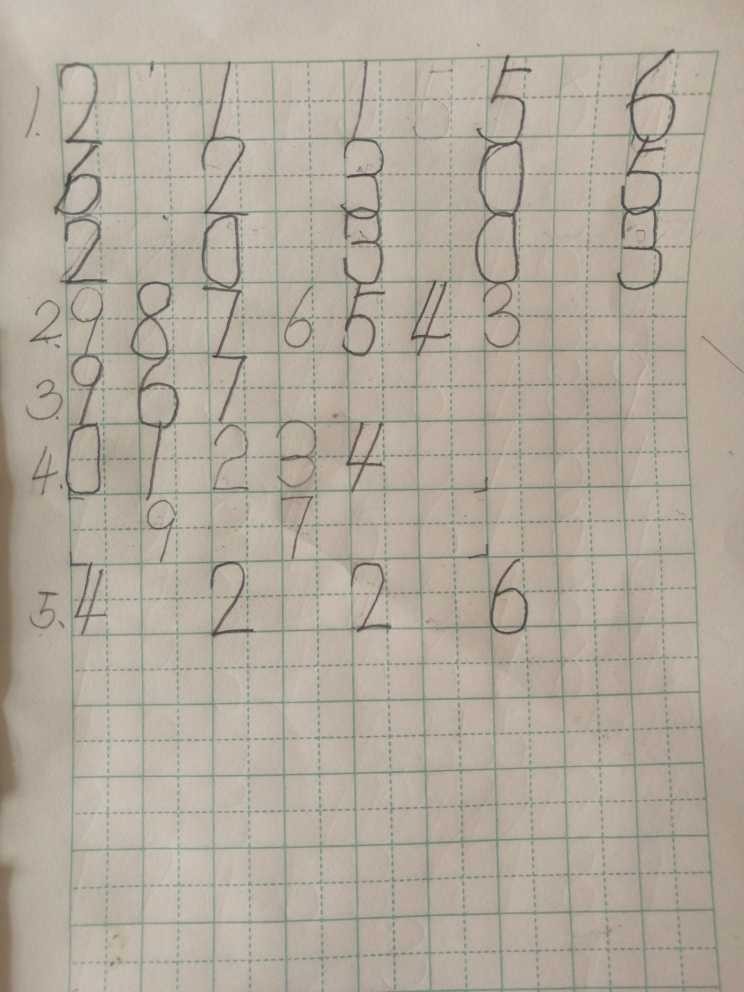 1. 2 1 1 5 6
6 2 3 0 5
2 0 3 0 3
2. 9 8 7 6 5 4 3
3. 9 6 7
4. 0 1 2 3 4
9 7
5. 4 2 2 6